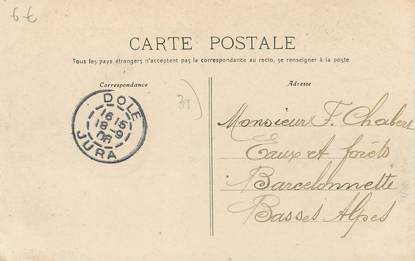 6 €
CARTE POSTALE
Tous les pays étrangers n'acceptent pas la correspondance au recto, se renseigner à la poste
Correspondance
Adresse
39
DOLE
16 15
18 - 9
08
JURA
Monsieur F. Chabert
Eaux et forêts
Barcelonnette
Basses Alpes